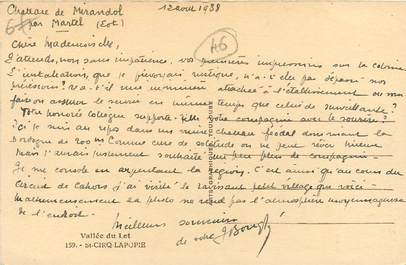 Chateau de Mirandol
par Martel (Lot)
12 août 1938
A6
Chère Mademoiselle,
J'attends, non sans impatience, vos premières impressions sur la colonie
L'installation, que je prévoyais rustique, n'a-t-elle pas dépassé nos
prévisions? Y a-t-il une infirmière attachée à l'établissement ou vous
fait-on assumer le service en même temps que celui de surveillante?
Votre honorée collègue supporte-t-elle votre compagnie avec le sourire?
Ici je suis au repos dans un vieux château féodal dominant la
Dordogne de 200 m Comme cure de solitude on ne peut rêver mieux
Mais j'aurais justement souhaité un peu plus de compagnie.
Je me console en arpentant la région. C'est ainsi qu'au cours du
Circuit de Cahors j'ai visité le ravissant petit village que voici.
Malheureusement la photo ne rend pas l'atmosphère moyenâgeuse
de l'endroit.
Meilleurs souvenirs
de votre
Vallée du Lot
159. - St-CIRQ-LAPOPIE